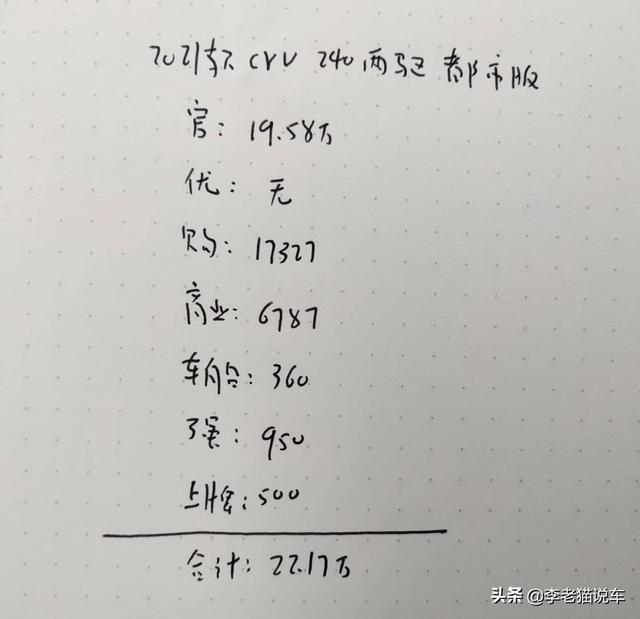 2021款 CRV 240两驱 都市版
官：19.58万
优：无
购：17327
商业：6787
车船：360
强：950
上牌：500
合计：22.17万
头条 @李老猫说车